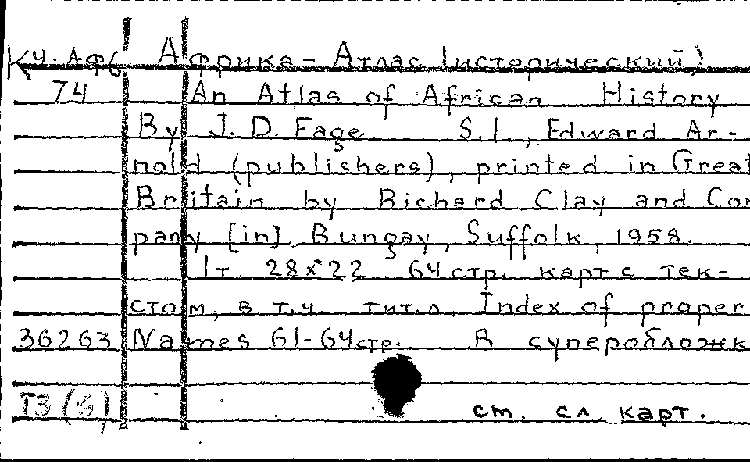 Кч-Аф6 Африка – Атлас (исторический)
74 An Atlas of African History
By J. D. Fage S. l., Edward Ar-
nold (publishers), printed in Great
Britain by Richard Clay and Com
pany [in] Bungay, Suffolk, 1958.
1т 28×22 64 стр. карт с тек-
стом, в т.ч. тит.л. Index of proper
36263 Names 61-64 стр. В суперобложк
Т3(6)
см. сл. карт.